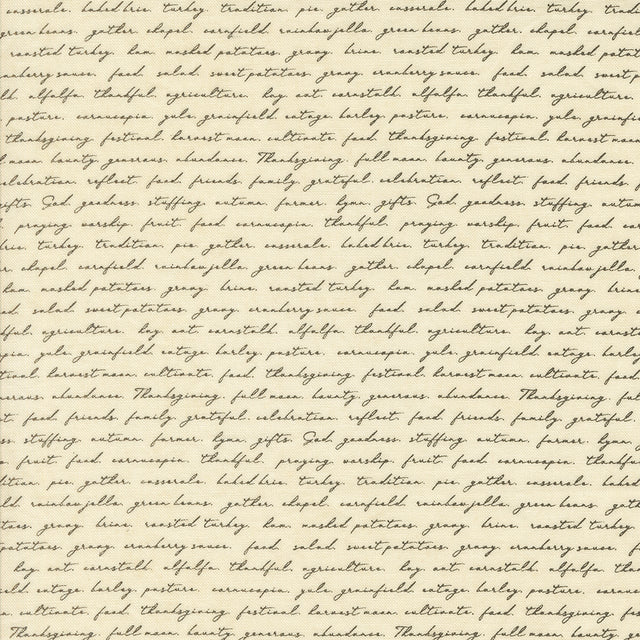 casserole. baked brie. turkey. tradition. pie. gather. casserole. baked brie. turkey. tradition.
green beans. gather. chapel. cornfield. rainbow jello. green beans. gather. chapel. cornfield
roasted turkey. ham. mashed potatoes. gravy. brine. roasted turkey. ham. mashed potatoes
cranberry sauce. food. salad. sweet potatoes. gravy. cranberry sauce. food. salad. sweet
alfalfa. thankful. agriculture. hay. oat. cornstalk. alfalfa. thankful. agriculture.
pasture. cornucopia. yule. grainfield. cotage. barley. pasture. cornucopia. yule. grainfield
thanksgiving. festival. harvest moon. cultivate. food. thanksgiving. festival. harvest moon
moon. bounty. generous. abundance. Thanksgiving. full moon. bounty. generous. abundance.
celebration. reflect. food. friends. family. grateful. celebration. reflect. food. friends.
gifts. God. goodness. stuffing. autumn. farmer. hymn. gifts. God. goodness. stuffing. autumn
praying. worship. fruit. food. cornucopia. thankful. praying. worship. fruit. food.
brie. turkey. tradition. pie. gather. casserole. baked brie. turkey. tradition. pie. gather
chapel. cornfield. rainbow jello. green beans. gather. chapel. cornfield. rainbow jello.
ham. mashed potatoes. gravy. brine. roasted turkey. ham. mashed potatoes. gravy. brine
salad. sweet potatoes. gravy. cranberry sauce. food. salad. sweet potatoes. gravy.
agriculture. hay. oat. cornstalk. alfalfa. thankful. agriculture. hay. oat.
yule. grainfield. cotage. barley. pasture. cornucopia. yule. grainfield. cotage. barley
harvest moon. cultivate. food. thanksgiving. festival. harvest moon. cultivate. food
abundance. Thanksgiving. full moon. bounty. generous. abundance. Thanksgiving.
food. friends. family. grateful. celebration. reflect. food. friends. family. grateful.
stuffing. autumn. farmer. hymn. gifts. God. goodness. stuffing. autumn. farmer. hymn
fruit. food. cornucopia. thankful. praying. worship. fruit. food. cornucopia.
tradition. pie. gather. casserole. baked brie. turkey. tradition. pie. gather. casserole.
rainbow jello. green beans. gather. chapel. cornfield. rainbow jello. green beans.
gravy. brine. roasted turkey. ham. mashed potatoes. gravy. brine. roasted turkey
potatoes. gravy. cranberry sauce. food. salad. sweet potatoes. gravy. cranberry sauce.
hay. oat. cornstalk. alfalfa. thankful. agriculture. hay. oat. cornstalk. alfalfa.
cotage. barley. pasture. cornucopia. yule. grainfield. cotage. barley. pasture.
cultivate. food. thanksgiving. festival. harvest moon. cultivate. food. thanksgiving.
Thanksgiving. full moon. bounty. generous. abundance. Thanksgiving. full moon. bounty